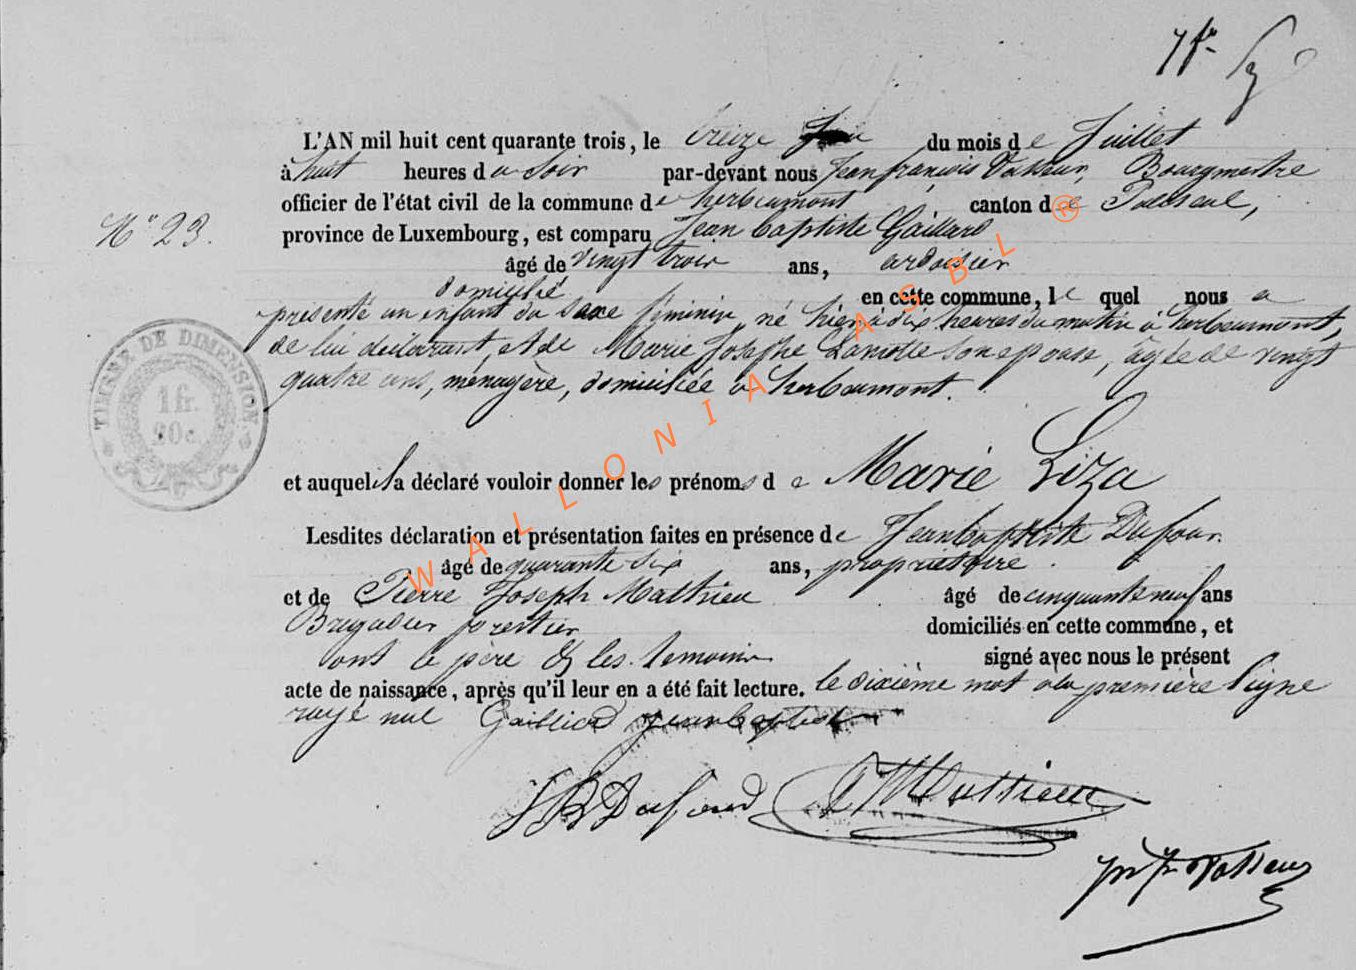 7 fr
L'AN mil huit cent quarante trois, le treize du mois de Juillet
à huit heures du Soir par-devant nous Jean françois Vasseur, Bourgmestre
officier de l'état civil de la commune de herbeumont canton de Paliseul,
N° 23.
province de Luxembourg, est comparu Jean baptiste Gaillard
âgé de vingt trois ans, ardoisier
domicilié en cette commune, le quel nous a
présenté un enfant du sexe féminin, né hier à dix heures du matin à herbeumont,
de lui déclarant, et de Marie Josephe Lamotte son epouse, âgée de vingt
quatre ans, ménagère, domiciliée à herbeumont.
TIMBRE DE DIMENSION
1 fr.
20 c.
et auquel il a déclaré vouloir donner les prénoms de Marie Liza
Lesdites déclaration et présentation faites en présence de Jean baptiste Dufour
âgé de quarante six ans, propriétaire.
et de Pierre Joseph Mathieu âgé de cinquante neuf ans
Brigadier forestier domiciliés en cette commune, et
ont le père & les temoins signé avec nous le présent
acte de naissance, après qu'il leur en a été fait lecture. le dixième mot à la première ligne
rayé nul Gailliard jean baptist
J B Dufour Mathieu
Jn Fr Vasseur
WALLONIA ASBL ®